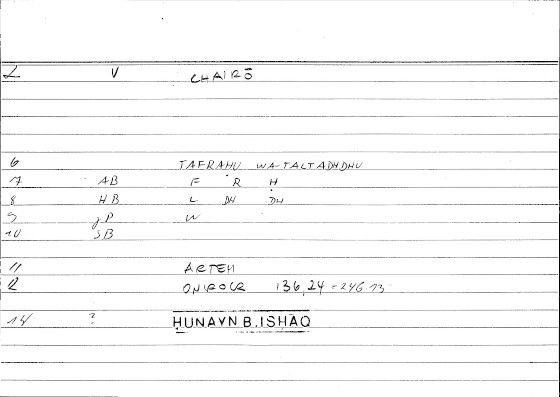 L V CHAIRŌ
6 TAFRAḤU WA-TALTADHDHU
7 AB F R Ḥ
8 HB L DH DH
9 gP W
10 SB
11 ARTEM
12 ONIROCR 136,24 = 246.13
14 ? ḤUNAYN B. ISḤĀQ